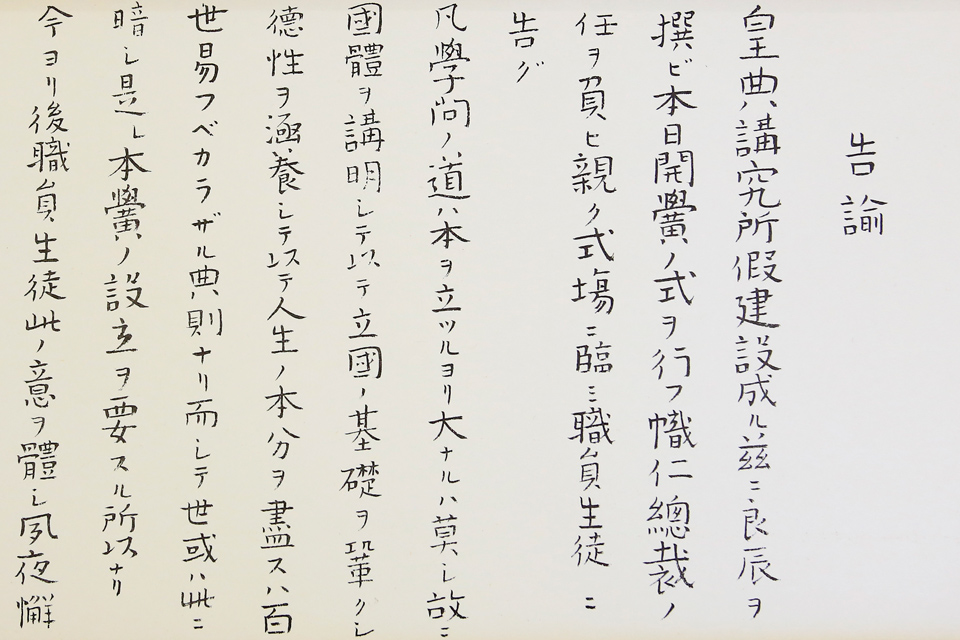 告諭
皇典講究所假建設成ル玆ニ良辰ヲ
撰ビ本日開黌ノ式ヲ行フ幟仁總裁ノ
任ヲ負ヒ親ク式場ニ臨ミ職員生徒ニ
告グ
凡學問ノ道ハ本ヲ立ツルヨリ大ナルハ莫シ故ニ
國體ヲ講明シテ以テ立國ノ基礎ヲ鞏クシ
德性ヲ涵養シテ以テ人生ノ本分ヲ盡スハ百
世易フベカラザル典則ナリ而シテ世或ハ此ニ
暗シ是レ本黌ノ設立ヲ要スル所以ナリ
今ヨリ後職員生徒此ノ意ヲ體シ夙夜懈